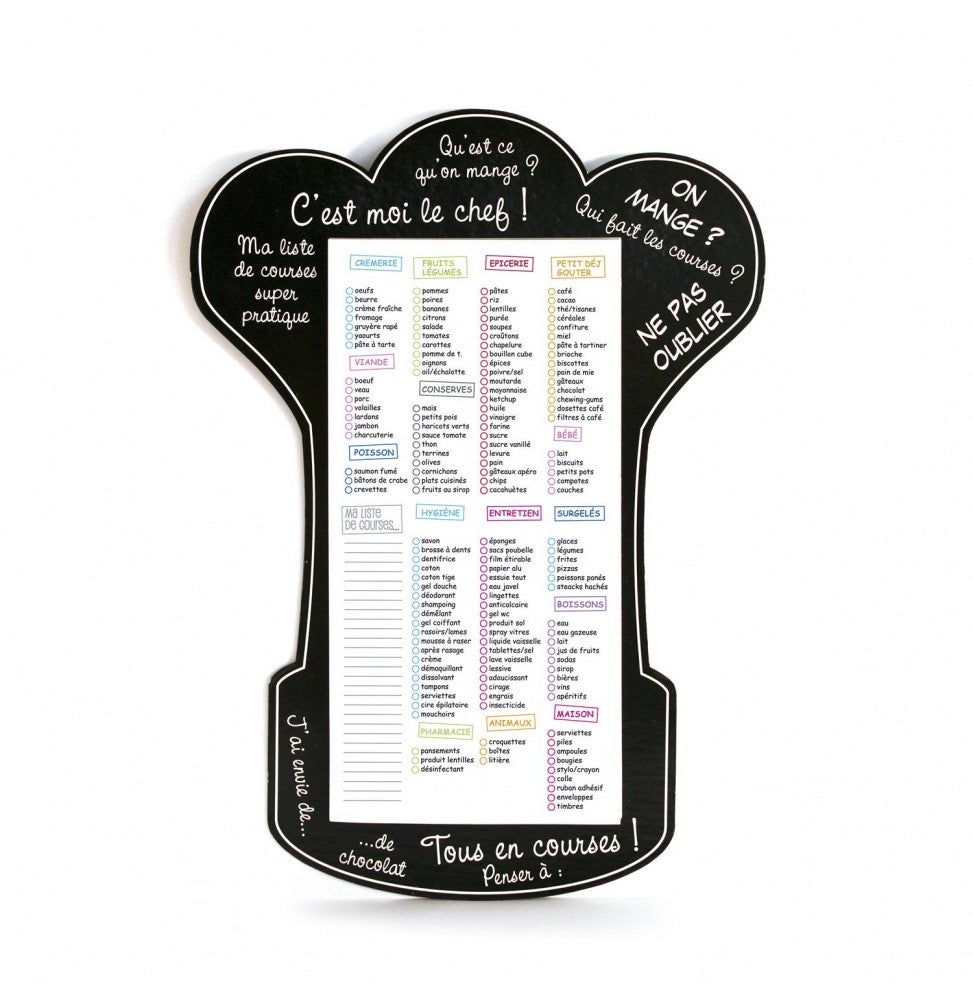 Qu'est ce
qu'on mange ?
C'est moi le chef !
ON
MANGE ?
Qui fait les courses ?
NE PAS
OUBLIER
Ma liste
de courses
super
pratique
CREMERIE
oeufs
beurre
crème fraîche
fromage
gruyère rapé
yaourts
pâte à tarte
VIANDE
boeuf
veau
porc
volailles
lardons
jambon
charcuterie
POISSON
saumon fumé
bâtons de crabe
crevettes
FRUITS
LÉGUMES
pommes
poires
bananes
citrons
salade
tomates
carottes
pomme de t.
oignons
ail/échalotte
CONSERVES
maïs
petits pois
haricots verts
sauce tomate
thon
terrines
olives
cornichons
plats cuisinés
fruits au sirop
EPICERIE
pâtes
riz
lentilles
purée
soupes
croûtons
chapelure
bouillon cube
épices
poivre/sel
moutarde
mayonnaise
ketchup
huile
vinaigre
farine
sucre
sucre vanillé
levure
pain
gâteaux apéro
chips
cacahuètes
PETIT DÉJ
GOUTER
café
cacao
thé/tisanes
céréales
confiture
miel
pâte à tartiner
brioche
biscottes
pain de mie
gâteaux
chocolat
chewing-gums
dosettes café
filtres à café
BÉBÉ
lait
biscuits
petits pots
compotes
couches
MA LISTE
DE COURSES...
HYGIÈNE
savon
brosse à dents
dentifrice
coton
coton tige
gel douche
déodorant
shampoing
démêlant
gel coiffant
rasoirs/lames
mousse à raser
après rasage
crème
démaquillant
dissolvant
tampons
serviettes
cire épilatoire
mouchoirs
PHARMACIE
pansements
produit lentilles
désinfectant
ENTRETIEN
éponges
sacs poubelle
film étirable
papier alu
essuie tout
eau javel
lingettes
anticalcaire
gel wc
produit sol
spray vitres
liquide vaisselle
tablettes/sel
lave vaisselle
lessive
adoucissant
cirage
engrais
insecticide
ANIMAUX
croquettes
boîtes
litière
SURGELÉS
glaces
légumes
frites
pizzas
poissons panés
steacks hachés
BOISSONS
eau
eau gazeuse
lait
jus de fruits
sodas
sirop
bières
vins
apéritifs
MAISON
serviettes
piles
ampoules
bougies
stylo/crayon
colle
ruban adhésif
enveloppes
timbres
J'ai envie de...
...de
chocolat
Tous en courses !
Penser à :